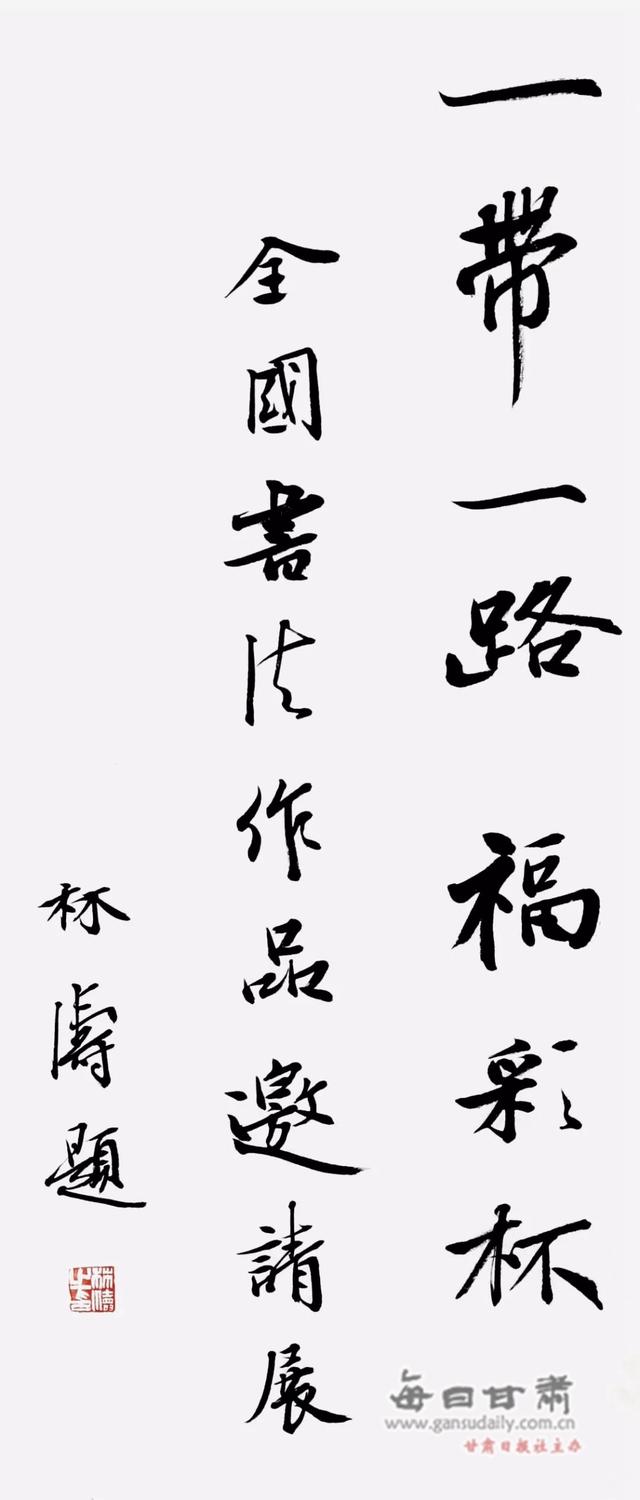 一帶一路 福彩杯
全國書法作品邀請展
林濤題
每日甘肃
www.gansudaily.com.cn
甘肃日报社主办